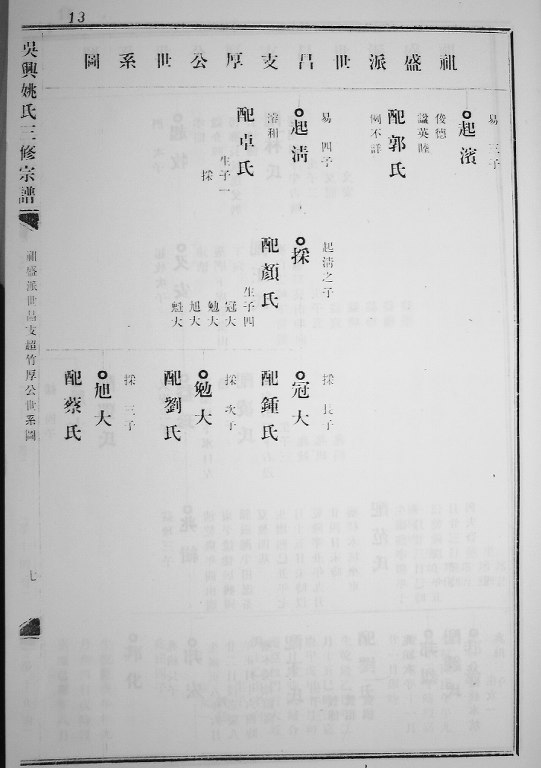 13
祖盛派世昌支厚公世系圖
易 三子
起濱
俊德
諡英睦
配郭氏
例不詳
易 四子
起淸
溶和
配卓氏
生子一
採
起淸之子
採
配顏氏
生子四
冠大
勉大
旭大
魁大
採 長子
冠大
配鍾氏
採 次子
勉大
配劉氏
採 三子
旭大
配蔡氏
吳興姚氏三修宗譜
祖盛派世昌支超竹厚公世系圖
七